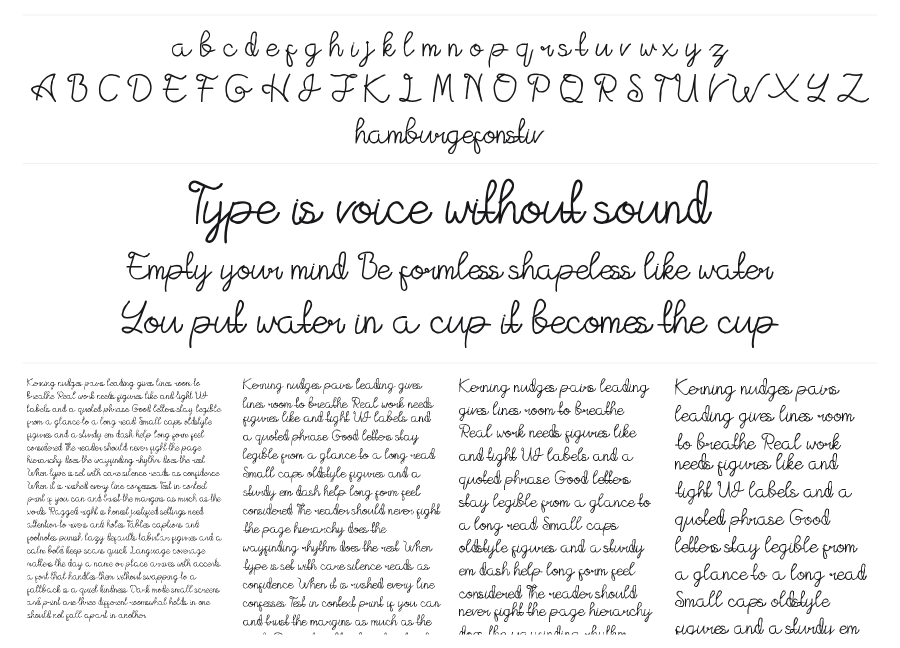 a b c d e f g h i j k l m n o p q r s t u v w x y z
A B C D E F G H I J K L M N O P Q R S T U V W X Y Z
hamburgefonstiv
Type is voice without sound
Empty your mind Be formless shapeless like water
You put water in a cup it becomes the cup
Kerning nudges pairs leading gives lines room to
breathe Real work needs figures like and tight UI
labels and a quoted phrase Good letters stay legible
from a glance to a long read Small caps oldstyle
figures and a sturdy em dash help long form feel
considered The reader should never fight the page
hierarchy does the wayfinding rhythm does the rest
When type is set with care silence reads as confidence
When it is rushed every line confesses Test in context
print if you can and trust the margins as much as the
words Ragged right is honest justified settings need
attention to rivers and holes Tables captions and
footnotes punish lazy defaults tabular figures and a
calm bold keep scans quick Language coverage
matters the day a name or place arrives with accents
a font that handles them without swapping to a
fallback is a quiet kindness Dark mode small screens
and print are three different rooms what holds in one
should not fall apart in another
Kerning nudges pairs leading gives
lines room to breathe Real work needs
figures like and tight UI labels and
a quoted phrase Good letters stay
legible from a glance to a long read
Small caps oldstyle figures and a
sturdy em dash help long form feel
considered The reader should never fight
the page hierarchy does the
wayfinding rhythm does the rest When
type is set with care silence reads as
confidence When it is rushed every line
confesses Test in context print if you can
and trust the margins as much as the
Kerning nudges pairs leading
gives lines room to breathe
Real work needs figures like
and tight UI labels and a
quoted phrase Good letters
stay legible from a glance to
a long read Small caps
oldstyle figures and a sturdy
em dash help long form feel
considered The reader should
never fight the page hierarchy
does the wayfinding rhythm
Kerning nudges pairs
leading gives lines room
to breathe Real work
needs figures like and
tight UI labels and a
quoted phrase Good
letters stay legible from
a glance to a long read
Small caps oldstyle
figures and a sturdy em